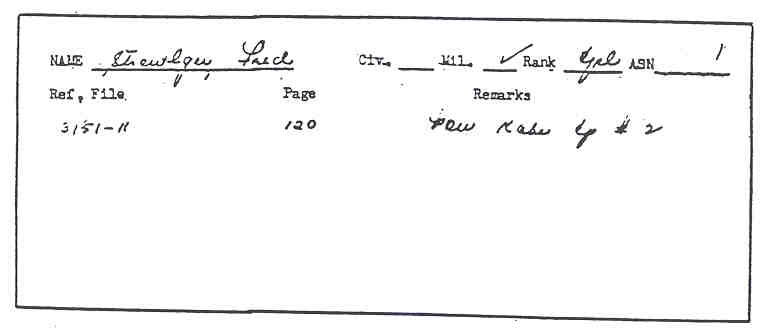 NAME Fred Civ. Mil. ✓ Rank Cpl ASN 1
Ref. File Page Remarks
3151-R 120 POW Kobe Cp # 2